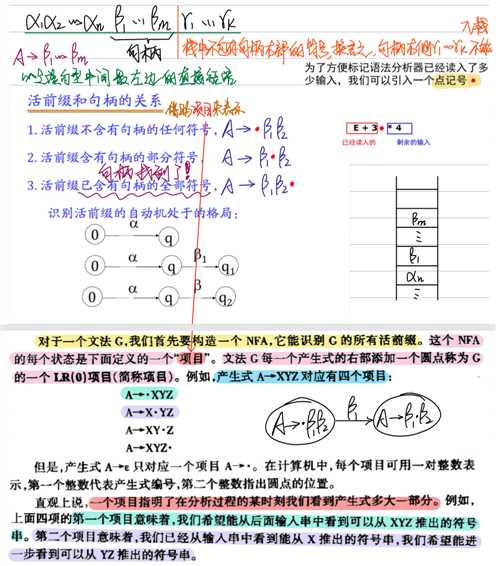 α₁α₂ ⋯ αₙ β₁ ⋯ βₘ | r₁ ⋯ rₖ
句柄
A → β₁ ⋯ βₘ
为了方便标记语法分析器已经读入了多
少输入，我们可以引入一个点记号 •
活前缀和句柄的关系
1. 活前缀不含有句柄的任何符号, A → •β₁β₂
E + 3 • * 4
已经读入的 剩余的输入
2. 活前缀含有句柄的部分符号, A → β₁•β₂
句柄找到了!!
3. 活前缀已含有句柄的全部符号, A → β₁β₂•
识别活前缀的自动机处于的格局:
0 α q
0 α q β₁ q₁
0 α q β q₂
βₘ
β₁
αₙ
对于一个文法 G,我们首先要构造一个 NFA,它能识别 G 的所有活前缀。这个 NFA
的每个状态是下面定义的一个“项目”。文法 G 每一个产生式的右部添加一个圆点称为 G
的一个 LR(0)项目(简称项目)。例如,产生式 A→XYZ 对应有四个项目:
A→·XYZ
A→X·YZ
A→XY·Z
A→XYZ·
A→•β₁β₂ β₁ A→β₁•β₂
但是,产生式 A→ε 只对应一个项目 A→·。在计算机中,每个项目可用一对整数表
示,第一个整数代表产生式编号,第二个整数指出圆点的位置。
直观上说,一个项目指明了在分析过程的某时刻我们看到产生式多大一部分。例如,
上面四项的第一个项目意味着,我们希望能从后面输入串中看到可以从 XYZ 推出的符号
串。第二个项目意味着,我们已经从输入串中看到能从 X 推出的符号串,我们希望能进
一步看到可以从 YZ 推出的符号串。